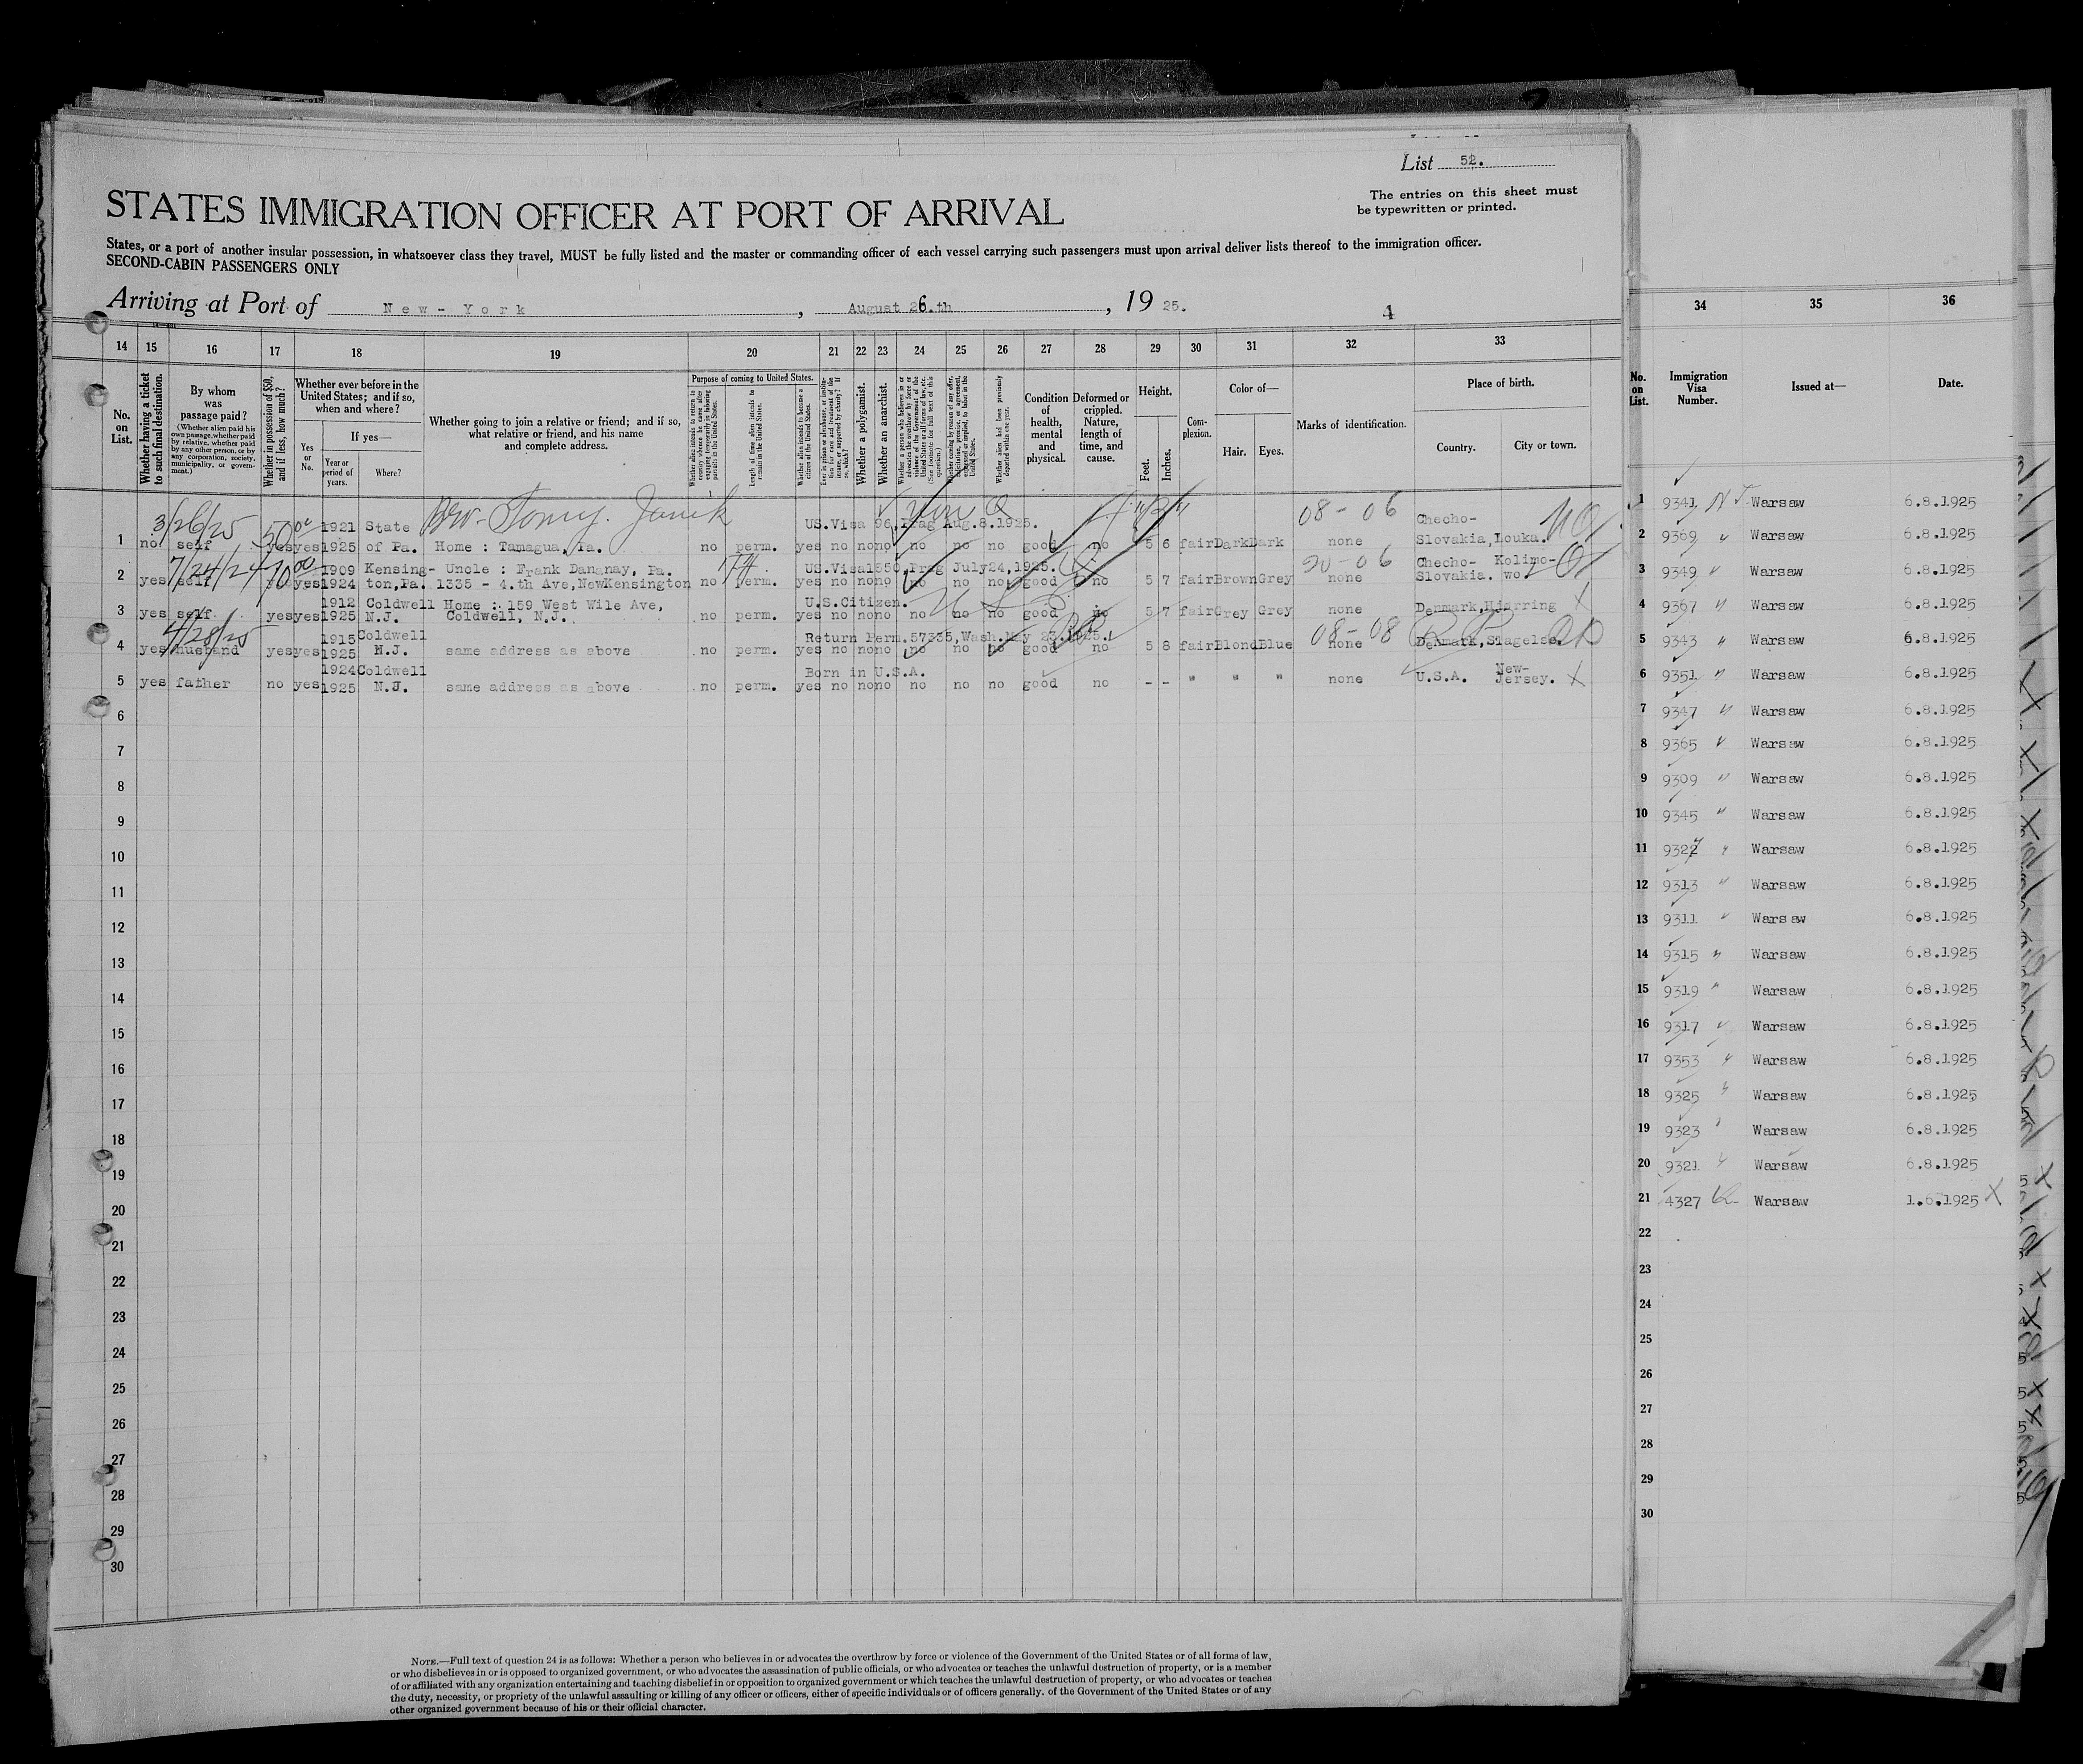 List 52.
The entries on this sheet must
be typewritten or printed.
STATES IMMIGRATION OFFICER AT PORT OF ARRIVAL
States, or a port of another insular possession, in whatsoever class they travel, MUST be fully listed and the master or commanding officer of each vessel carrying such passengers must upon arrival deliver lists thereof to the immigration officer.
SECOND-CABIN PASSENGERS ONLY
Arriving at Port of New-York, August 26.th, 1925.
14 15 16 17 18 19 20 21 22 23 24 25 26 27 28 29 30 31 32 33
No. on List.
Whether having a ticket to such final destination.
By whom was passage paid?
(Whether alien paid his own passage, whether paid by relative, whether paid by any other person, or by any corporation, society, municipality, or government.)
Whether in possession of $50, and if less, how much?
Whether ever before in the United States; and if so, when and where?
Yes or No.
If yes—
Year or period of years.
Where?
Whether going to join a relative or friend; and if so, what relative or friend, and his name and complete address.
Purpose of coming to United States.
Length of time alien intends to remain in the United States.
Whether a polygamist.
Whether an anarchist.
Condition of health, mental and physical.
Deformed or crippled. Nature, length of time, and cause.
Height.
Feet.
Inches.
Complexion.
Color of—
Hair.
Eyes.
Marks of identification.
Place of birth.
Country.
City or town.
3/26/25 50 00 1921 State Bro- Tomy. Janik US.Visa 96, Prag Aug.8.1925. 08-06 Checho-
1 no self yes yes 1925 of Pa. Home : Tamagua, Pa. no perm. yes no no no no no no good no 5 6 fair Dark Dark none Slovakia, Louka.
7/24/24 70 00 1909 Kensing- Uncle : Frank Dananay, Pa. US.Visa1550, Prag July24,1925. 20-06 Checho- Kolimo-
2 yes self yes yes 1924 ton,Pa. 1335 - 4.th Ave,NewKensington no perm. yes no no no no no no good no 5 7 fair Brown Grey none Slovakia. wo
1912 Coldwell Home : 159 West Wile Ave, U.S.Citizen.
3 yes self yes yes 1925 N.J. Coldwell, N.J. no perm. yes no no no no no no good no 5 7 fair Grey Grey none Denmark, Hjørring X
4/28/25 1915 Coldwell Return Perm.57335,Wash.May 23,1925. 08-08
4 yes husband yes yes 1925 N.J. same address as above no perm. yes no no no no no no good no 5 8 fair Blond Blue none Denmark, Slagelse.
1924 Coldwell Born in U.S.A. New-
5 yes father no yes 1925 N.J. same address as above no perm. yes no no no no no no good no - - " " " none U.S.A. Jersey. X
6
7
8
9
10
11
12
13
14
15
16
17
18
19
20
21
22
23
24
25
26
27
28
29
30
NOTE.—Full text of question 24 is as follows: Whether a person who believes in or advocates the overthrow by force or violence of the Government of the United States or of all forms of law,
or who disbelieves in or is opposed to organized government, or who advocates the assassination of public officials, or who advocates or teaches the unlawful destruction of property, or is a member
of or affiliated with any organization entertaining and teaching disbelief in or opposition to organized government or which teaches the unlawful destruction of property, or who advocates or teaches
the duty, necessity, or propriety of the unlawful assaulting or killing of any officer or officers, either of specific individuals or of officers generally, of the Government of the United States or of any
other organized government because of his or their official character.
34 35 36
No. on List.
Immigration Visa Number.
Issued at—
Date.
1 9341 Warsaw 6.8.1925
2 9369 " Warsaw 6.8.1925
3 9349 " Warsaw 6.8.1925
4 9367 " Warsaw 6.8.1925
5 9343 " Warsaw 6.8.1925
6 9351 " Warsaw 6.8.1925
7 9347 " Warsaw 6.8.1925
8 9365 " Warsaw 6.8.1925
9 9309 " Warsaw 6.8.1925
10 9345 " Warsaw 6.8.1925
11 9327 " Warsaw 6.8.1925
12 9313 " Warsaw 6.8.1925
13 9311 " Warsaw 6.8.1925
14 9315 " Warsaw 6.8.1925
15 9319 " Warsaw 6.8.1925
16 9317 " Warsaw 6.8.1925
17 9353 " Warsaw 6.8.1925
18 9325 " Warsaw 6.8.1925
19 9323 " Warsaw 6.8.1925
20 9321 " Warsaw 6.8.1925
21 4327 Warsaw 1.6.1925 X
22
23
24
25
26
27
28
29
30